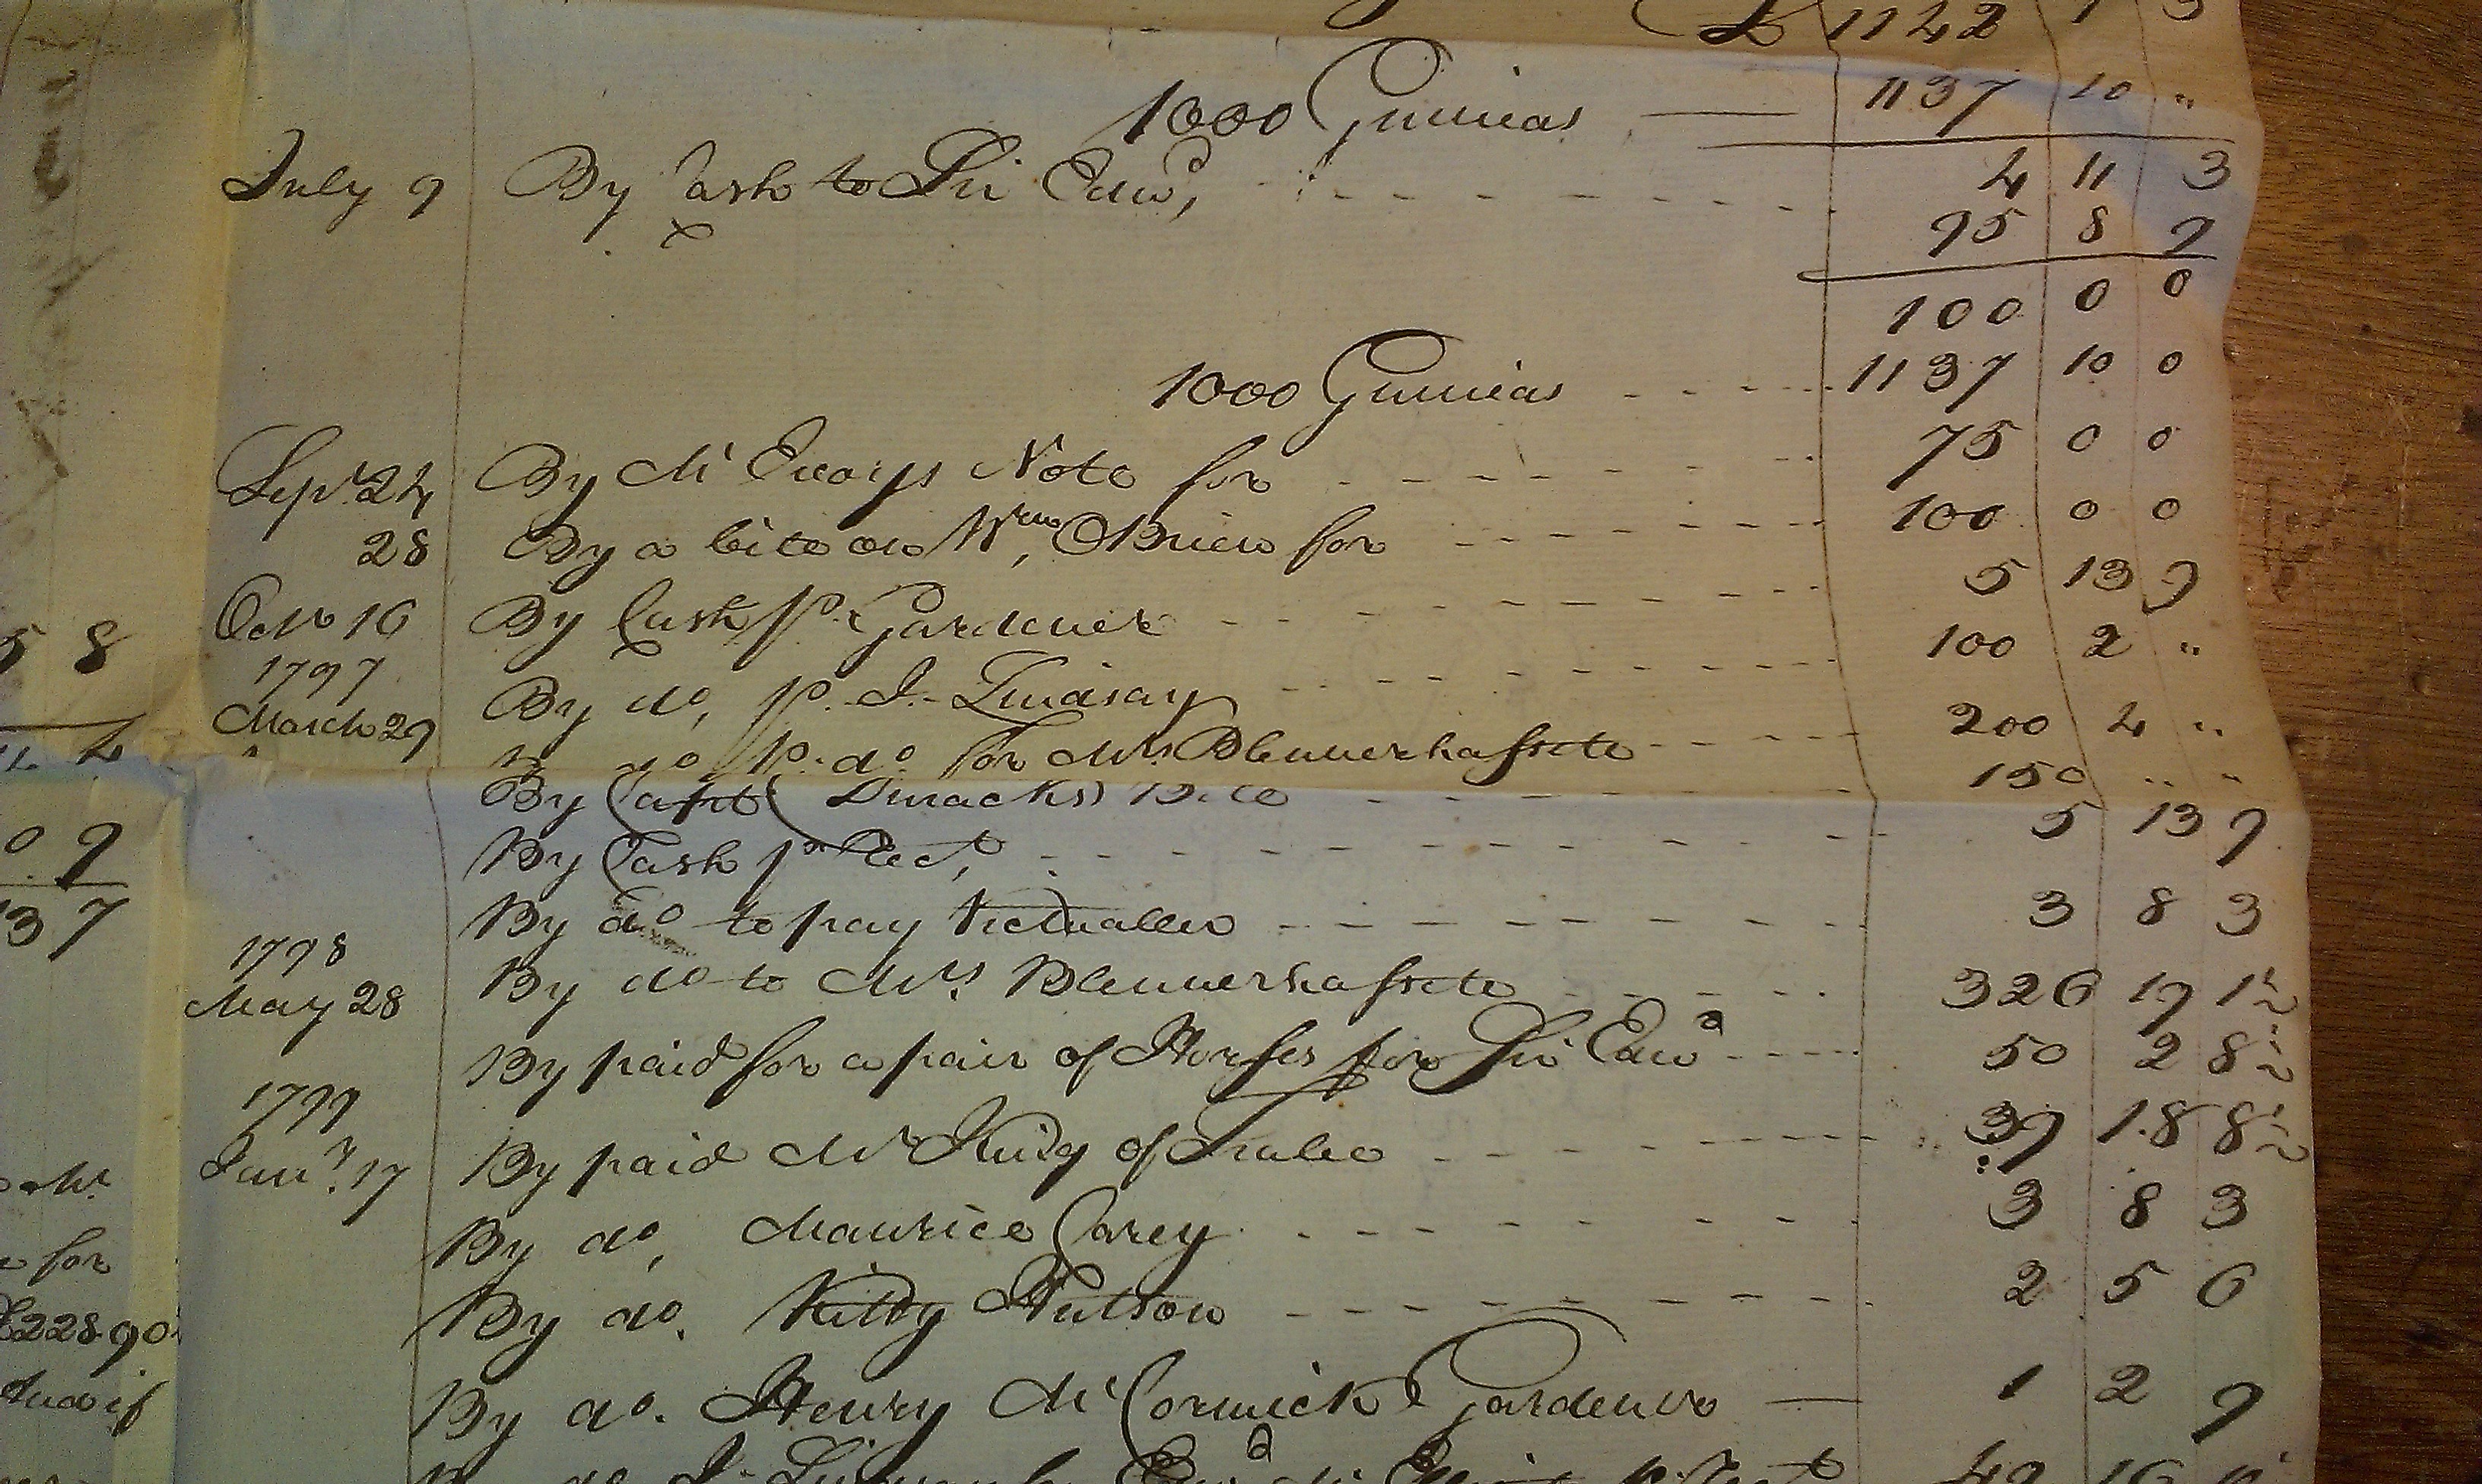 £ 1142 1 3
1000 Guineas 1137 10 "
July 9 By Cash to Sir Edwd, 4 11 3
x 95 8 9
100 0 0
1000 Guineas 1137 10 0
Sepr 24 By Mr Note for 75 0 0
28 By a bill on Wm, OBrien for 100 0 0
Octr 16 By Cash pr Gardener 5 13 9
1797
March 29 By do, pr J. Lindsay 100 2 "
By do pr do for Mrs Blennerhassett 200 4 "
By Capt Bill 150 " "
By Cash pr Rect, 5 13 9
By do to pay Victualler 3 8 3
1798
May 28 By do to Mrs. Blennerhassett 326 19 1½
By paid for a pair of Horses for Sir Edwd 50 2 8½
1799
Jany. 17 By paid Mr King of Tralee 39 18 8½
By do, Maurice Carey 3 8 3
By do. Kitty Hutson 2 5 6
By do. Henry McCormick Gardener 1 2 9
49 16
5 8
4
0 9
3 7
Mr
for
£228 90